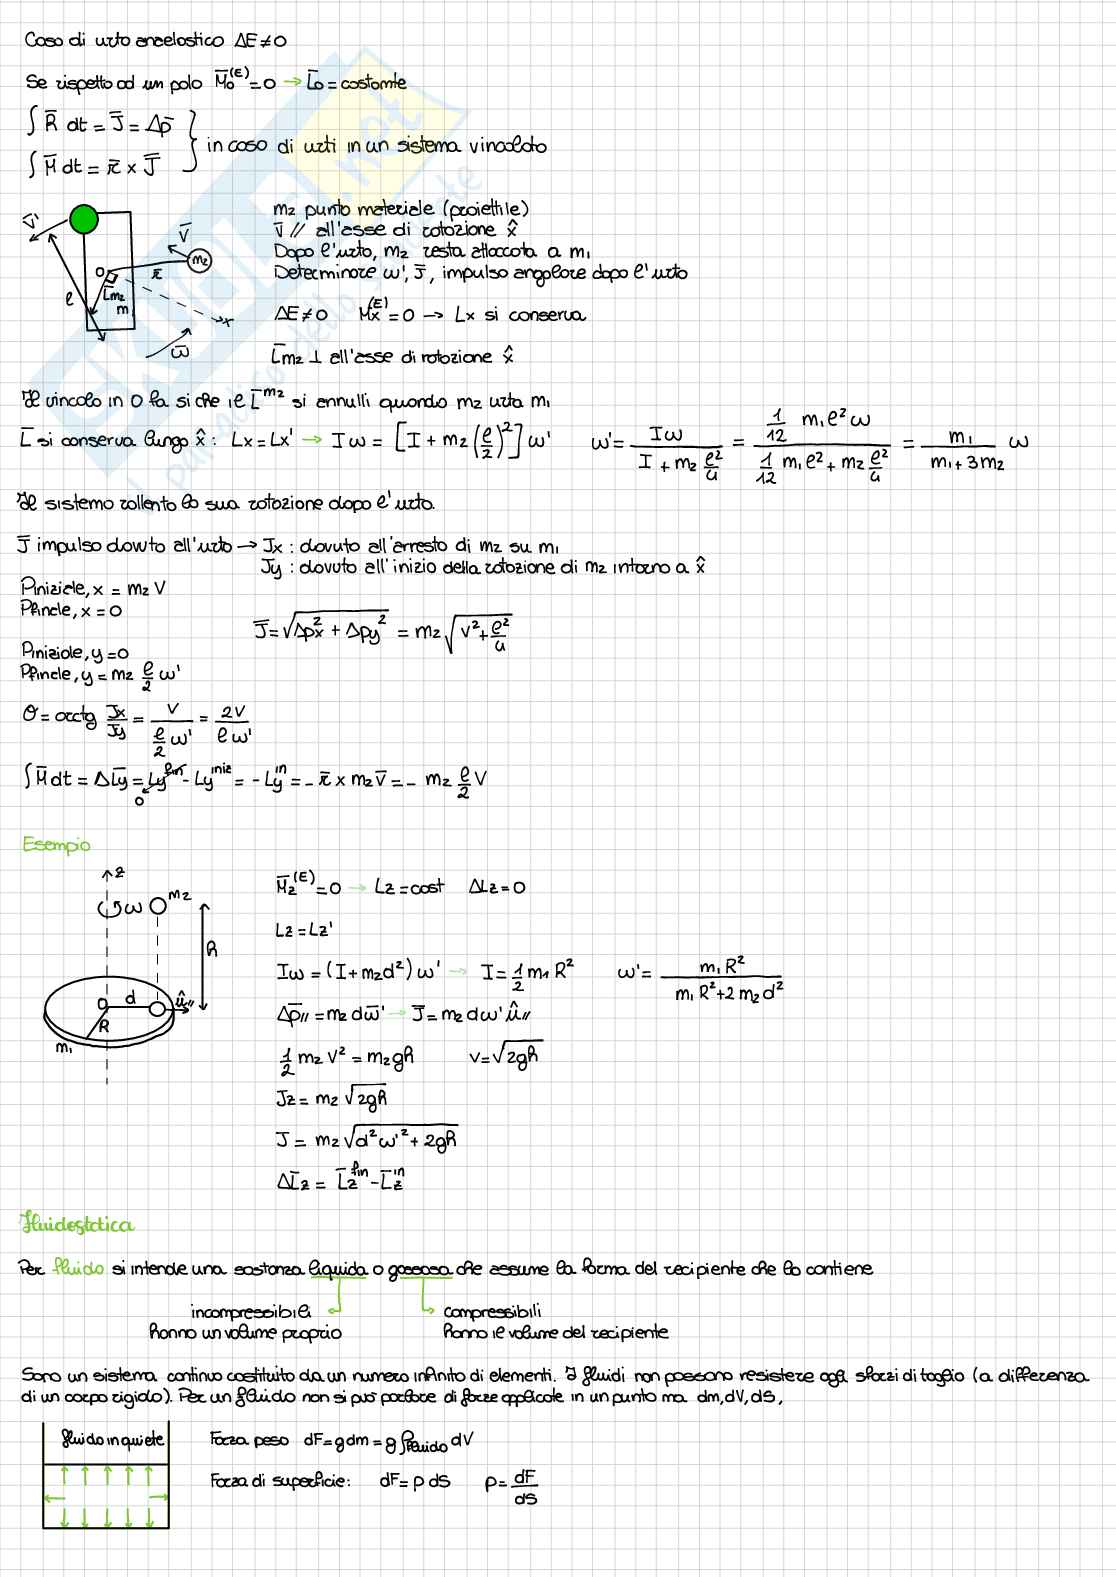 Caso di urto anelastico ΔE≠0
Se rispetto ad un polo M̄₀⁽ᴱ⁾=0 → L̄₀=costante
∫R̄ dt = J̄ = Δp̄
∫M̄ dt = r̄ × J̄
in caso di urti in un sistema vincolato
v̄'
V̄
m₂
O
r̄
ℓ
L̄m₂
m
x
ω̄
m₂ punto materiale (proiettile)
V̄ // all'asse di rotazione x̂
Dopo l'urto, m₂ resta attaccata a m₁
Determinare ω', J̄, impulso angolare dopo l'urto
ΔE≠0 Mₓ⁽ᴱ⁾=0 → Lx si conserva
L̄m₂ ⊥ all'asse di rotazione x̂
Il vincolo in O fa si che il L̄ᵐ² si annulli quando m₂ urta m₁
L̄ si conserva lungo x̂: Lx=Lx' → Iω = [I + m₂(ℓ/2)²]ω' ω' = Iω / (I + m₂ ℓ²/4) = (1/12 m₁ℓ²ω) / (1/12 m₁ℓ² + m₂ ℓ²/4) = m₁/(m₁+3m₂) ω
Il sistema rallenta la sua rotazione dopo l'urto.
J̄ impulso dovuto all'urto → Jx : dovuto all'arresto di m₂ su m₁
Jy : dovuto all'inizio della rotazione di m₂ intorno a x̂
Piniziale, x = m₂ V
Pfinale, x = 0
J̄ = √(Δpx² + Δpy²) = m₂ √(V² + ℓ²/4)
Piniziale, y = 0
Pfinale, y = m₂ ℓ/2 ω'
θ = arctg Jx/Jy = V/(ℓ/2 ω') = 2V/(ℓ ω')
∫M̄ dt = ΔL̄y = Ly^fin - Ly^iniz = - Ly^in = - r̄ × m₂V̄ = - m₂ ℓ/2 V
0
Esempio
z
ω
m₂
h
O
d
û//
R
m₁
M̄z⁽ᴱ⁾=0 → Lz=cost ΔLz=0
Lz=Lz'
Iω = (I+m₂d²)ω' → I = 1/2 m₁R² ω' = m₁R² / (m₁R²+2m₂d²)
Δp̄// = m₂dω̄' → J̄ = m₂dω'û//
1/2 m₂V² = m₂gh v=√2gh
Jz = m₂ √2gh
J = m₂√(d²ω'²+2gh)
ΔL̄z = L̄z^fin - L̄z^in
Fluidostatica
Per fluido si intende una sostanza liquida o gassosa che assume la forma del recipiente che lo contiene
incompressibili
hanno un volume proprio
compressibili
hanno il volume del recipiente
Sono un sistema continuo costituito da un numero infinito di elementi. I fluidi non possono resistere agli sforzi di taglio (a differenza
di un corpo rigido). Per un fluido non si può parlare di forze applicate in un punto ma dm, dV, dS,
fluido in quiete
Forza peso dF = g dm = g ρfluido dV
Forza di superficie: dF = p dS p = dF/dS